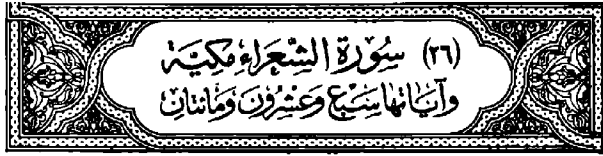 (٢٦) سُورَة الشُّعَرَاءِ مَكِيَّة
وَآيَاتُهَا سَبْعٌ وَعِشْرُونَ وَمَائتَانِ